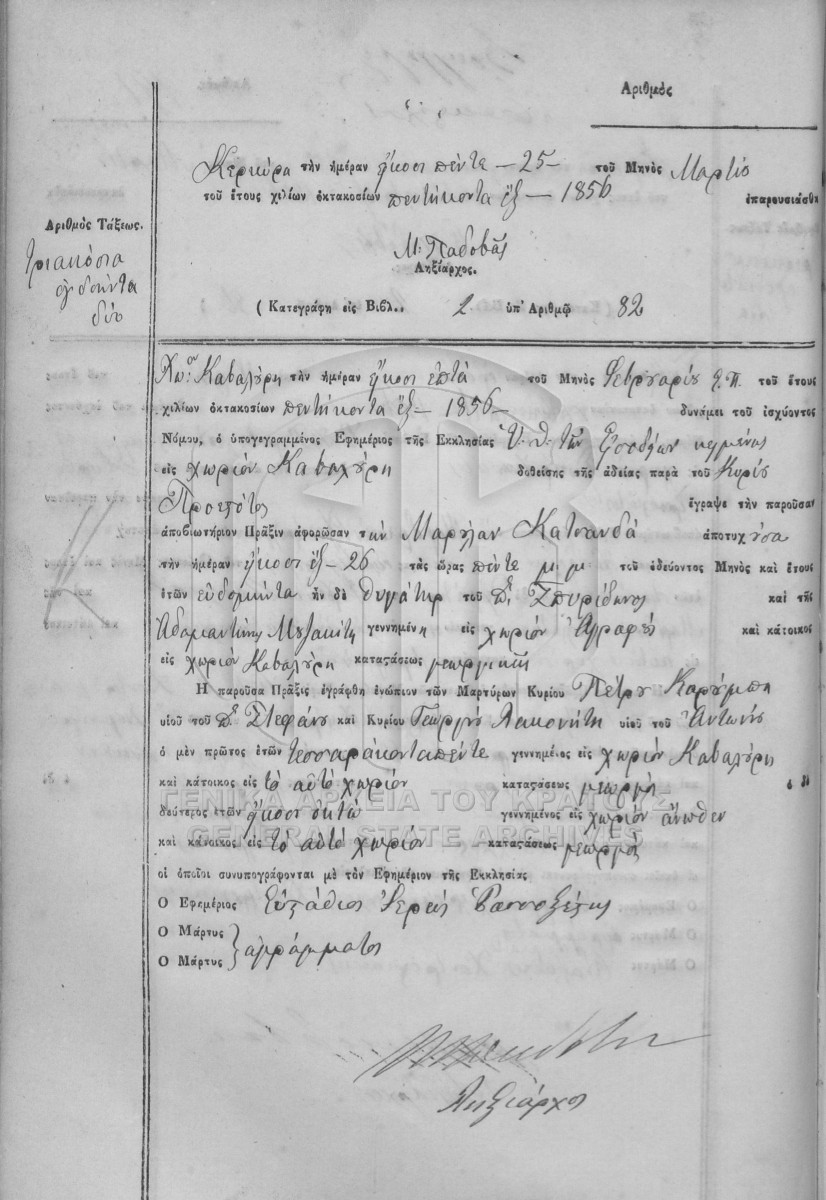 Ἀριθμός
Κερκύρα τὴν ἡμέραν ἤκοσι πέντε — 25 — τοῦ Μηνὸς Μαρτίο
τοῦ ἔτους χιλίων ὀκτακοσίων πεντήκοντα ἕξ — 1856 ἐπαρουσιάσθη
Μ. Παδοβᾶς
Ληξίαρχος.
Ἀριθμὸς Τάξεως.
τριακόσια
ὀγδοήντα
δύο
( Κατεγράφη εἰς Βιβλ.. 2 ὑπ' Ἀριθμῷ 82
Χωριον Καβαλύρη τὴν ἡμέραν ἤκοσι ἑπτὰ τοῦ Μηνὸς Φεβρουαρίου Ε.Π. τοῦ ἔτους
χιλίων ὀκτακοσίων πεντήκοντα ἕξ — 1856 — δυνάμει τοῦ ἰσχύοντος
Νόμου, ὁ ὑπογεγραμμένος Ἐφημέριος τῆς Ἐκκλησίας Ὑ. Θ. τῶν Εἰσοδίων κειμένης
εἰς χωρίον Καβαλύρη δοθείσης τῆς ἀδείας παρὰ τοῦ Κυρίου
Προεστότος ἔγραψε τὴν παροῦσαν
ἀποβιωτήριον Πρᾶξιν ἀφορῶσαν τὴν Κατσανδὰ ἀποτυχοῦσα
τὴν ἡμέραν ἤκοσι ἕξ — 26 τὰς ὥρας πέντε μ.μ. τοῦ ὁδεύοντος Μηνὸς καὶ ἔτους
ἐτῶν εὐδομήντα ἦν δὲ θυγάτηρ τοῦ Σπυρίδωνος καὶ τῆς
Ἀδαμαντίνης Μεζακίτη γεννημένη εἰς χωρίον Ἀγραφὲς καὶ κάτοικος
εἰς χωρίον Καβαλύρη καταστάσεως γεωργικῆς
Ἡ παροῦσα Πρᾶξις ἐγράφθη ἐνώπιον τῶν Μαρτύρων Κυρίου Πέτρου Καρύμπη
υἱοῦ τοῦ Στεφάνου καὶ Κυρίου Γεωργίου Λακονίτη υἱοῦ τοῦ Ἀντωνίου
ὁ μὲν πρῶτος ἐτῶν τεσσαράκοντα πέντε γεννημένος εἰς χωρίον Καβαλύρη
καὶ κάτοικος εἰς τὸ αὐτὸ χωρίον καταστάσεως γεωργὸς ὁ δὲ
δεύτερος ἐτῶν ἤκοσι ὀκτὼ γεννημένος εἰς χωρίον ἄνωθεν
καὶ κάτοικος εἰς τὸ αὐτὸ χωρίον καταστάσεως γεωργὸς
οἱ ὁποῖοι συνυπογράφονται μὲ τὸν Ἐφημέριον τῆς Ἐκκλησίας
Ὁ Ἐφημέριος Εὐστάθιος Ἱερεὺς
Ὁ Μάρτυς
Ὁ Μάρτυς } ἀγράμματοι
Ληξίαρχος
ΓΕΝΙΚΑ ΑΡΧΕΙΑ ΤΟΥ ΚΡΑΤΟΥΣ
GENERAL STATE ARCHIVES